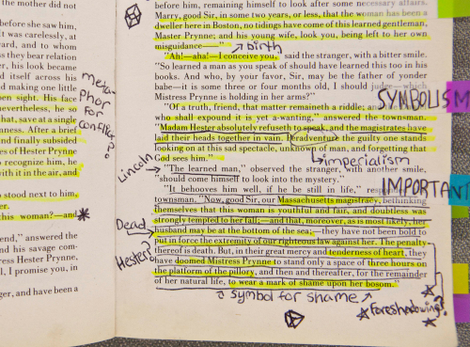 the mother did not
before she saw him,
was carelessly, at
ard, and to whom
s they bear relation
er, his look became
ed itself across his
nd making one little
pen sight. His face
nevertheless, he so
that, save at a single
mness. After a brief
and finally subsided
es of Hester Prynne
o recognize him, he
with it in the air, and
stood next to him,
er.
this woman?—and
end," answered the
nd his savage com-
ster Prynne,
I promise you, in
nger, and have been a
meta
phor
for
before him, remaining himself to look after some necessary affairs.
Marry, good Sir, in some two years, or less, that the woman has been a
dweller here in Boston, no tidings have come of this learned gentleman,
Master Prynne; and his young wife, look you, being left to her own
misguidance—"
birth
"Ah!—aha!—I conceive you," said the stranger, with a bitter smile.
"So learned a man as you speak of should have learned this too in his
books. And who, by your favor, Sir, may be the father of yonder
babe—it is some three or four months old, I should judge—which
Mistress Prynne is holding in her arms?"
"Of a truth, friend, that matter remaineth a riddle; and
who shall expound it is yet a-wanting," answered the townsman.
"Madam Hester absolutely refuseth to speak, and the magistrates have
laid their heads together in vain. Peradventure the guilty one stands
looking on at this sad spectacle, unknown of man, and forgetting that
God sees him."
imperialism
"The learned man," observed the stranger, with another smile,
"should come himself to look into the mystery."
"It behooves him well, if he be still in life,"
townsman. "Now, good Sir, our Massachusetts magistracy, bethinking
themselves that this woman is youthful and fair, and doubtless was
strongly tempted to her fall—and that, moreover, as is most likely, her
husband may be at the bottom of the sea;—they have not been bold to
put in force the extremity of our righteous law against her. The penalty
thereof is death. But, in their great mercy and tenderness of heart, they
have doomed Mistress Prynne to stand only a space of three hours on
the platform of the pillory, and then and thereafter, for the remainder
of her natural life, to wear a mark of shame upon her bosom."
Lincoln
Dead
Hester?
symbol for shame
foreshadowing?
SYMBOLISM
IMPORTANT